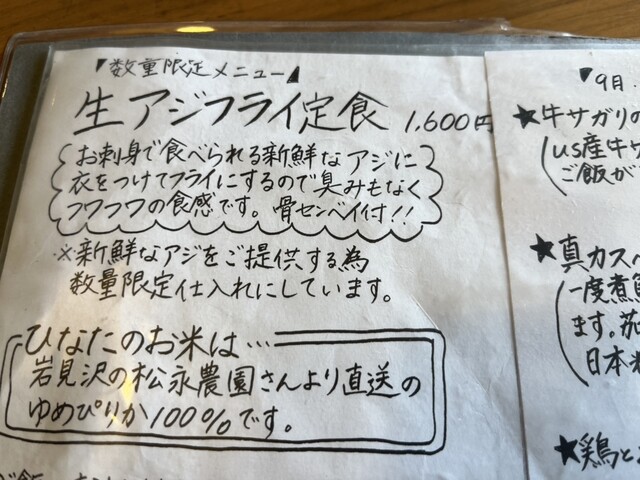 数量限定メニュー
生アジフライ定食 1,600円
お刺身で食べられる新鮮なアジに
衣をつけてフライにするので臭みもなく
フワフワの食感です。骨センベイ付!!
※新鮮なアジをご提供する為
数量限定仕入れにしています。
ひなたのお米は…
岩見沢の松永農園さんより直送の
ゆめぴりか100%です。
9月.
★牛サガリの
(us産牛サ
ご飯が
★真カスベ
(一度煮
ます。茄
日本
★鶏と